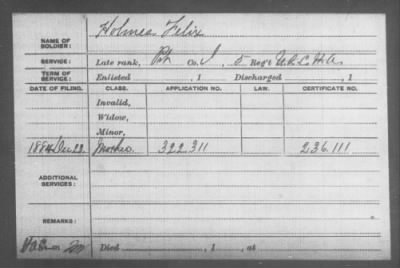 NAME OF SOLDIER: Holmes Felix
SERVICE: Late rank, Pvt Co. I, 5 Reg't U.S.C. H.A.
TERM OF SERVICE: Enlisted , 1 Discharged , 1
DATE OF FILING. CLASS. APPLICATION NO. LAW. CERTIFICATE NO.
Invalid,
Widow,
Minor,
1884 Dec 22. Mother. 322.311 236.111
ADDITIONAL SERVICES:
REMARKS:
Died , 1 , at